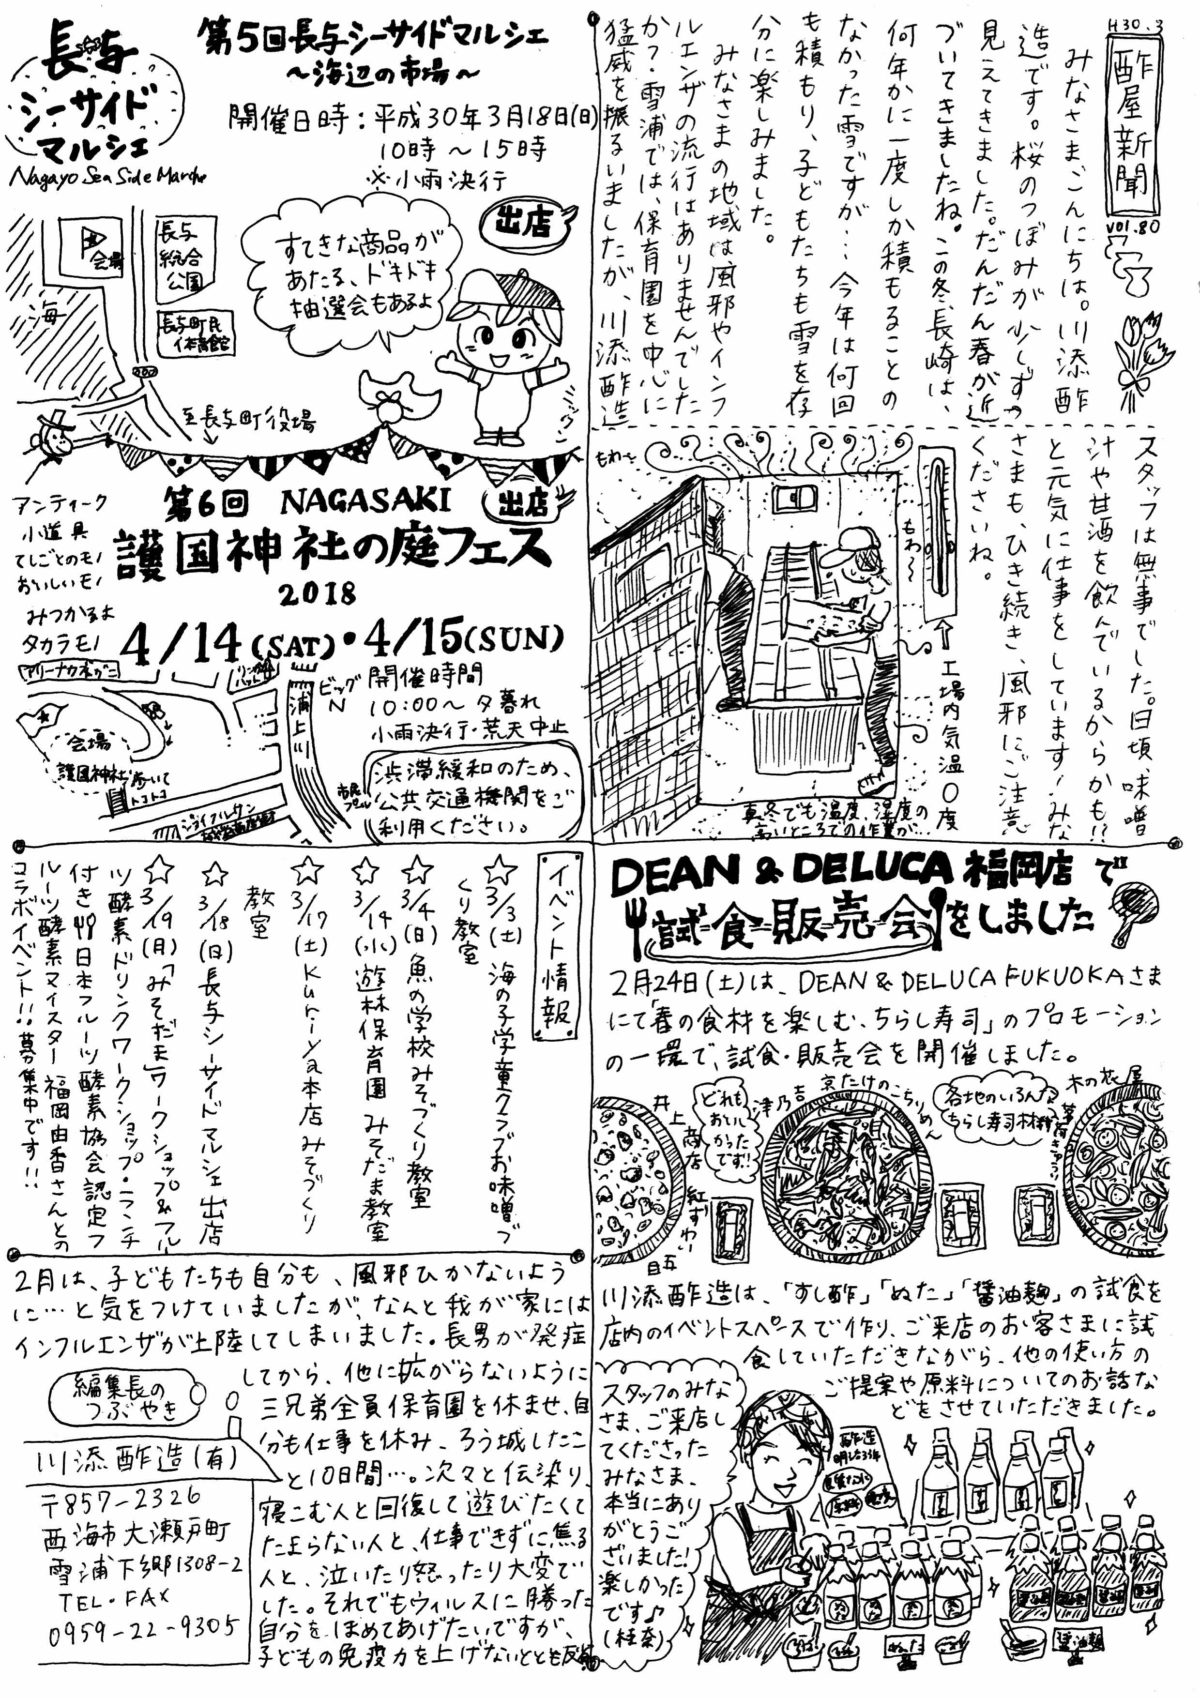 H30.3
酢屋新聞
vol.80
みなさま、こんにちは。川添酢
造です。桜のつぼみが少しずつ
見えてきました。だんだん春が近
づいてきましたね。この冬、長崎は、
何年かに一度しか積もることの
なかった雪ですが…今年は何回
も積もり、子どもたちも雪を存
分に楽しみました。
みなさまの地域は風邪やインフ
ルエンザの流行はありませんでした
か?雪浦では、保育園を中心に
猛威を振るいましたが、川添酢造
スタッフは無事でした。日頃、味噌
汁や甘酒を飲んでいるからかも!?
と元気に仕事をしています!みな
さまも、ひき続き、風邪にご注意
くださいね。
もわ〜
もわ〜
↑工場内気温0度
真冬でも温度、湿度の
高いところでの作業が…
長与
シーサイド
マルシェ
Nagayo Sea Side Marche
第5回長与シーサイドマルシェ
〜海辺の市場〜
開催日時:平成30年3月18日(日)
10時〜15時
※小雨決行
出店
すてきな商品が
あたる、ドキドキ
抽選会もあるよ
会場
長与
総合
公園
海
長与町民
体育館
至長与町役場
アンティーク
小道具
てしごとのモノ
おいしいモノ
みつかるよ
タカラモノ
第6回 NAGASAKI
出店
護国神社の庭フェス
2018
4/14(SAT)・4/15(SUN)
開催時間
10:00〜夕暮れ
小雨決行・荒天中止
渋滞緩和のため、
公共交通機関をご
利用ください。
浦上川
ビッグN
市民プール
会場
護国神社
歩いて
トコトコ
イベント情報
☆3/3(土) 海の子学童クラブお味噌づ
くり教室
☆3/4(日) 魚の学校みそづくり教室
☆3/14(水) 遊林保育園 みそだま教室
☆3/17(土) Kuriya本店みそづくり
教室
☆3/18(日) 長与シーサイドマルシェ出店
☆3/19(月)「みそだま」ワークショップ&フルー
ツ酵素ドリンクワークショップ・ランチ
付き 日本フルーツ酵素協会認定フ
ルーツ酵素マイスター福岡由香さんとの
コラボイベント!!募集中です!!
DEAN & DELUCA 福岡店で
試食販売会をしました
2月24日(土)は、DEAN & DELUCA FUKUOKAさま
にて「春の食材を楽しむ、ちらし寿司」のプロモーション
の一環で、試食・販売会を開催しました。
井上商店
どれも
おいし
かった
です!!
津乃吉
京たけのこちりめん
各地のいろんな
ちらし寿司材料
木の花屋
川添酢造は、「すし酢」「ぬた」「醤油麹」の試食を
店内のイベントスペースで作り、ご来店のお客さまに試
食していただきながら、他の使い方の
ご提案や原料についてのお話な
どをさせていただきました。
スタッフのみな
さま、ご来店し
てくださった
みなさま、
本当にあり
がとうご
ざいました!
楽しかった
です♪
(桂奈)
ぬた
醤油麹
2月は、子どもたちも自分も、風邪ひかないよう
に…と気をつけていましたが、なんと我が家には
インフルエンザが上陸してしまいました。長男が発症
してから、他に拡がらないように
三兄弟全員保育園を休ませ、自
分も仕事を休み、ろう城したこ
と10日間…。次々と伝染り、
寝こむ人と回復して遊びたくて
たまらない人と、仕事できずに焦る
人と、泣いたり怒ったり大変で
した。それでもウィルスに勝った
自分を、ほめてあげたいですが、
子どもの免疫力を上げないととも反省
編集長の
つぶやき
川添酢造(有)
〒857-2326
西海市大瀬戸町
雪浦下郷1308-2
TEL・FAX
0959-22-9305